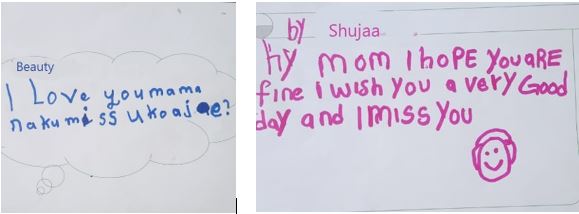 Beauty
I Love you mama
nakumiss ukoaje?
by Shujaa
hy mom I hOPE YOUARE
fine i wish you a very Good
day and I MISS YOU